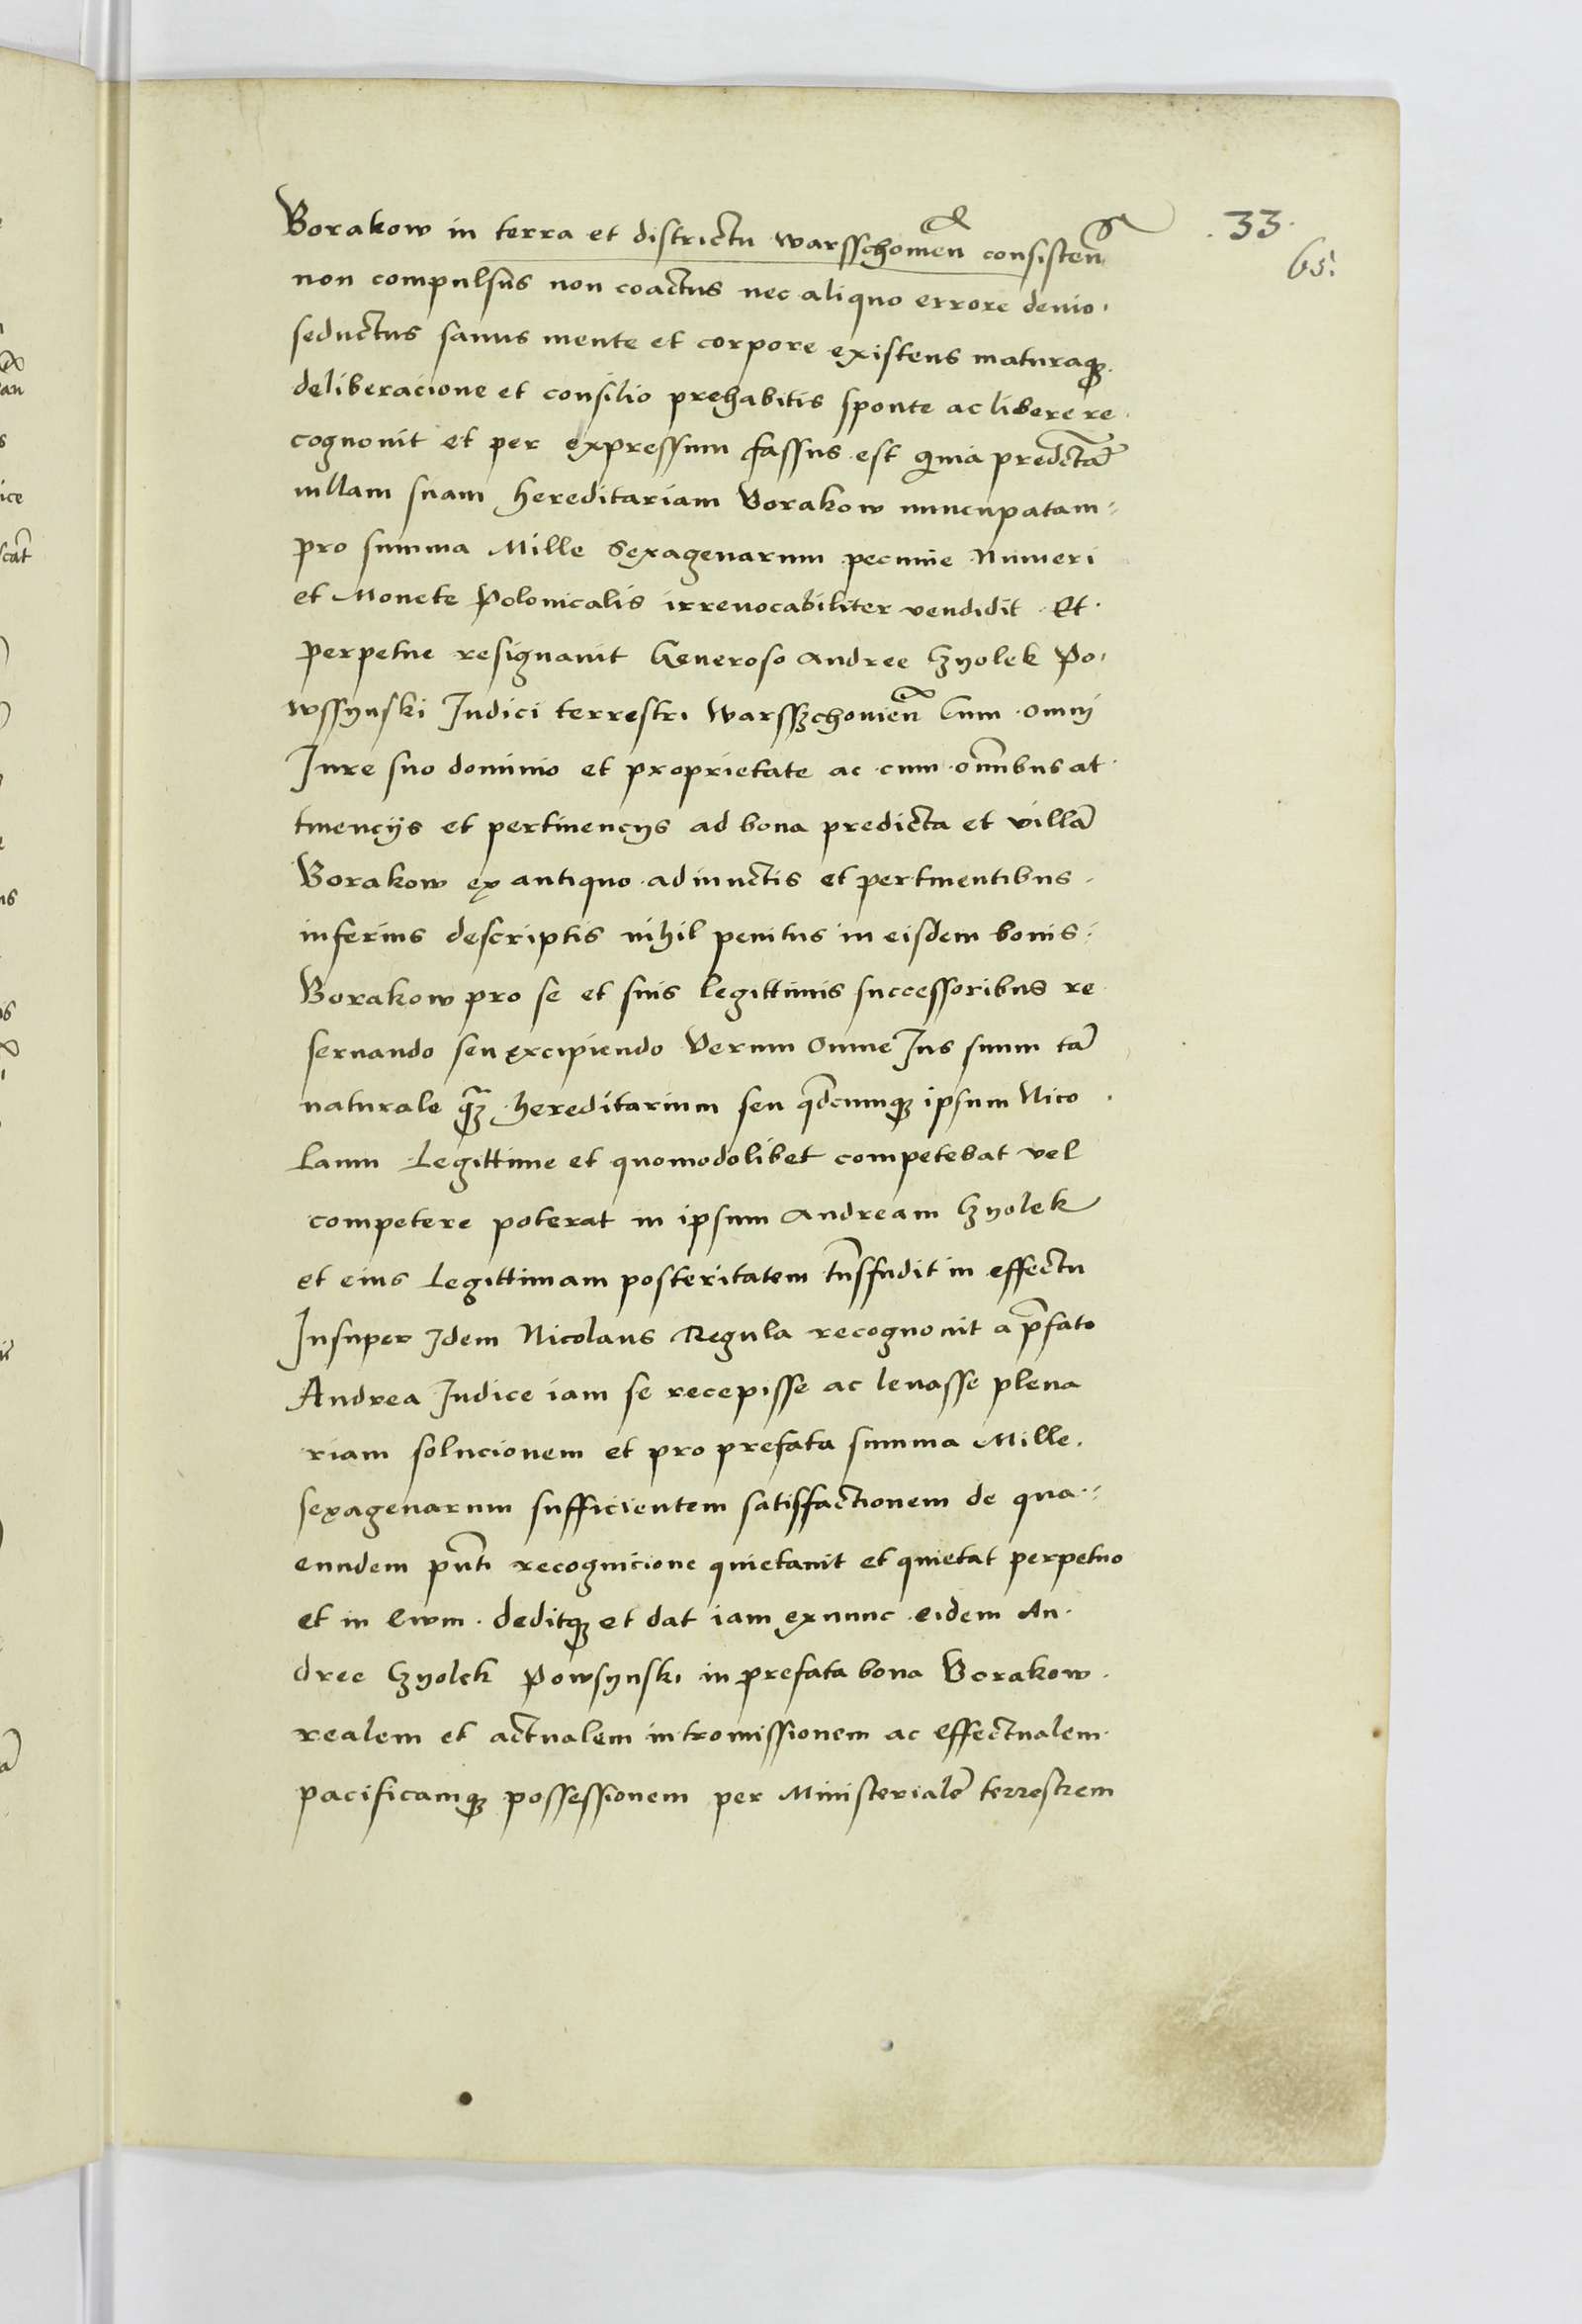 Borakow in terra et districtu warsschouien̄ consisten̄
.33.
65.
non compulsus non coactus nec aliquo errore deuio
seductus sanus mente et corpore existens maturaqȝ
deliberacione et consilio prehabitis sponte ac libere re
cognouit et per expressum fassus est quia predictā
villam suam hereditariam Borakow nuncupatam
pro summa Mille Sexagenarum pecunie Numeri
et Monete Polonicalis irreuocabiliter vendidit Et
perpetue resignauit Generoso Andree Czyolek Po
wssynski Iudici terrestri warsszchouien̄ Cum omni
Iure suo dominio et proprietate ac cum om̄ibus at
tinencijs et pertinencijs ad bona predicta et villā
Borakow ex antiquo adiunctis et pertinentibus
inferius descriptis nihil penitus in eisdem bonis
Borakow pro se et suis legittimis successoribus re
seruando seu excipiendo Verum Omne Ius suum tā
naturale q̄ȝ hereditarium seu qd̄cumqȝ ipsum Nico
laum Legittime et quomodolibet competebat vel
competere poterat in ipsum Andream Czyolek
et eius Legittimam posteritatem tn̄sfudit in effectu
Insuper Idem Nicolaus Regula recognouit a p̄fato
Andrea Iudice iam se recepisse ac leuasse plena
riam solucionem et pro prefata summa Mille
sexagenarum sufficientem satisfactionem de qua
eundem pn̄ti recognicione quietauit et quietat perpetuo
et in ewm. deditqȝ et dat iam exnunc eidem An
dree Czyolek Powsynski in prefata bona Borakow
realem et actualem intromissionem ac effectualem
pacificamqȝ possessionem per Ministerialē terrestrem